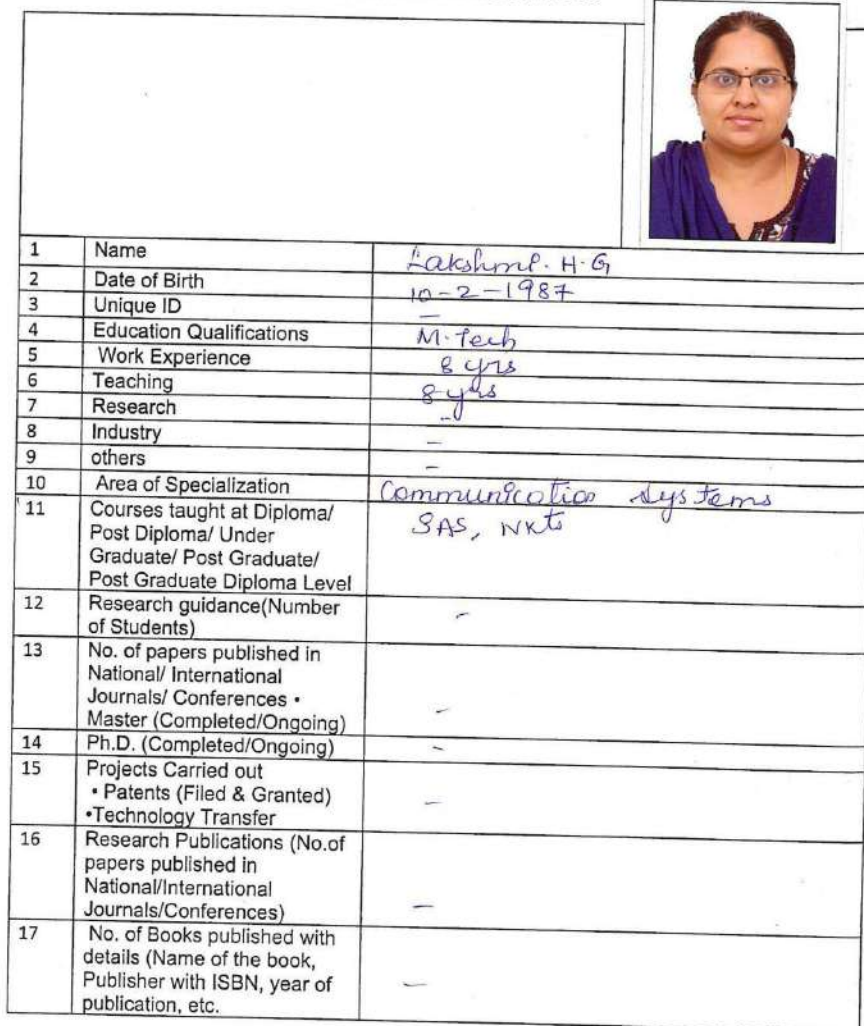 1 Name Lakshmi. H. G
2 Date of Birth 10-2-1987
3 Unique ID –
4 Education Qualifications M.Tech
5 Work Experience 8 yrs
6 Teaching 8 yrs
7 Research –
8 Industry –
9 others –
10 Area of Specialization Communication systems
11 Courses taught at Diploma/ SAS, NKTs
Post Diploma/ Under
Graduate/ Post Graduate/
Post Graduate Diploma Level
12 Research guidance(Number –
of Students)
13 No. of papers published in
National/ International
Journals/ Conferences •
Master (Completed/Ongoing) –
14 Ph.D. (Completed/Ongoing) –
15 Projects Carried out
• Patents (Filed & Granted) –
•Technology Transfer
16 Research Publications (No.of
papers published in
National/International
Journals/Conferences) –
17 No. of Books published with
details (Name of the book,
Publisher with ISBN, year of –
publication, etc.